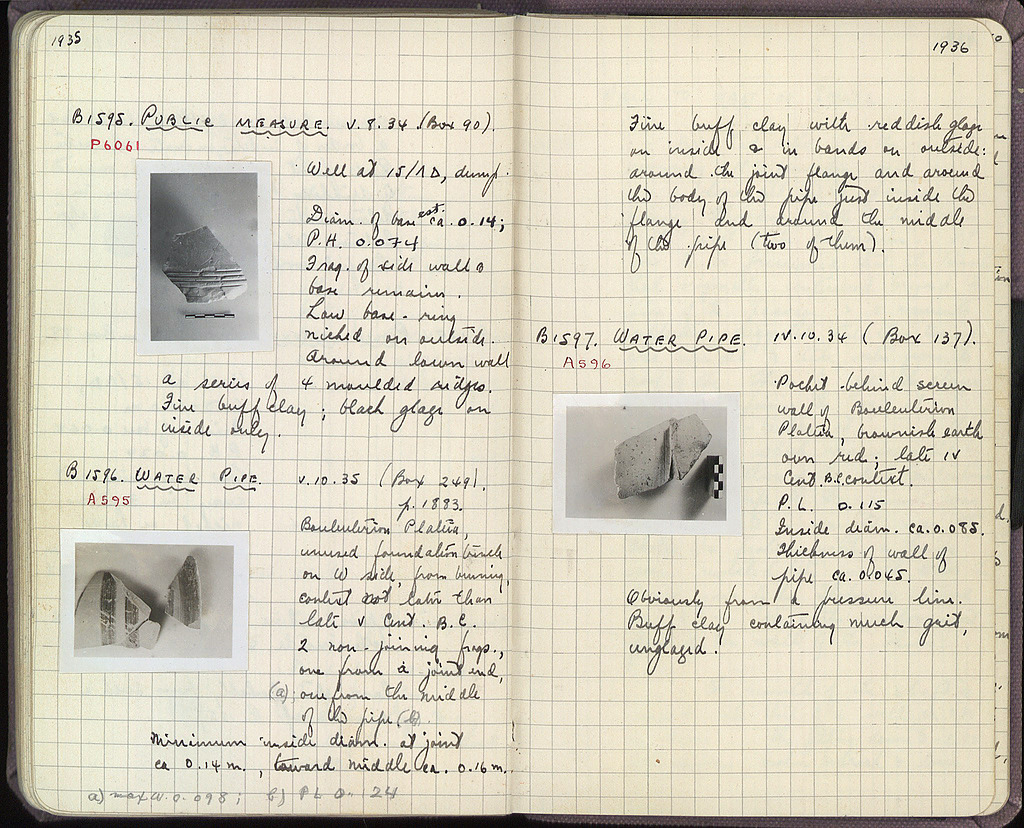 1935
B1595. PUBLIC MEASURE. V.8.34. (Box 90).
P6061
Well at 15/ΛΔ, dump.
Diam. of base est. ca. 0.14;
P.H. 0.074
Frag. of side wall &
base remains.
Low base-ring
niched on outside.
Around lower wall
a series of 4 moulded ridges.
Fine buff clay; black glaze on
inside only.
B1596. WATER PIPE. V.10.35 (Box 249).
A595
p. 1883.
Bouleuterion Plateia,
unused foundation trench
on W side, from burning,
context not later than
late V Cent. B.C.
2 non-joining frags.,
one from a joint end,
(a) one from the middle
of the pipe (b).
Minimum inside diam. at joint
ca 0.14 m., toward middle ca. 0.16 m.
a) max W. 0.098; b) PL 0.24
1936
Fine buff clay with reddish glaze
on inside & in bands on outside:
around the joint flange and around
the body of the pipe just inside the
flange and around the middle
of the pipe (two of them).
B1597. WATER PIPE. IV.10.34 (Box 137).
A596
Pocket behind screen
wall of Bouleuterion
Plateia, brownish earth
over red; late IV
Cent. B.C. context.
P.L. 0.115
Inside diam. ca. 0.085.
Thickness of wall of
pipe ca. 0.045.
Obviously from a pressure line.
Buff clay containing much grit,
unglazed.